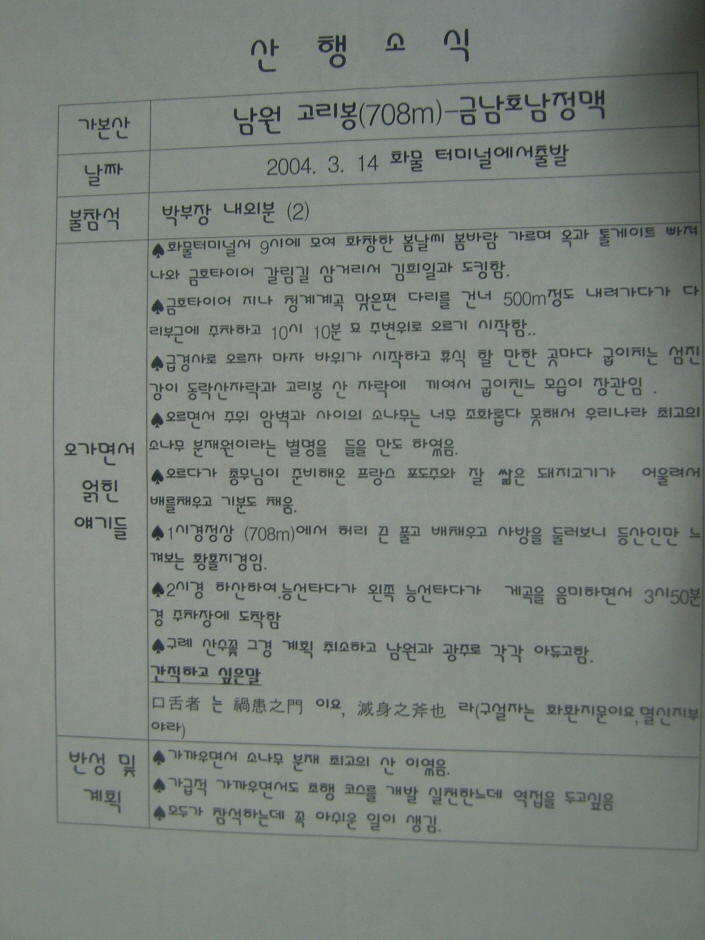 산 행 소 식
가본산
남원 고리봉(708m)-금남호남정맥
날짜
2004. 3. 14 화물 터미널에서출발
불참석
박부장 내외분 (2)
오가면서
얽힌
얘기들
♠화물터미널서 9시에 모여 화창한 봄날씨 봄바람 가르며 옥과 톨게이트 빠져
나와 금호타이어 갈림길 삼거리서 김희일과 도킹함.
♠금호타이어 지나 청계계곡 맞은편 다리를 건너 500m정도 내려가다가 다
리부근에 주차하고 10시 10분 묘 주변위로 오르기 시작함..
♠급경사로 오르자 마자 바위가 시작하고 휴식 할 만한 곳마다 굽이치는 섬진
강이 동락산자락과 고리봉 산 자락에 끼여서 굽이친느 모습이 장관임 .
♠오르면서 주위 암벽과 사이의 소나무는 너무 조화롭다 못해서 우리나라 최고의
소나무 분재원이라는 별명을 들을 만도 하였음.
♠오르다가 총무님이 준비해온 프랑스 포도주와 잘 삶은 돼지고기가 어울려서
배를채우고 기분도 채움.
♠1시경정상 (708m)에서 허리 끈 풀고 배채우고 사방을 둘러보니 등산인만 느
껴보는 황홀지경임.
♠2시경 하산하여.능선타다가 왼쪽 능선타다가 계곡을 음미하면서 3시50분
경 주차장에 도착함
♠구례 산수꽃 그경 계획 취소하고 남원과 광주로 각각 아듀고함.
간직하고 싶은말
口舌者 는 禍患之門 이요, 滅身之斧也 라(구설자는 화환지문이요,멸신지부
야라)
반성 및
계획
♠가까우면서 소나무 분재 최고의 산 이였음.
♠가급적 가까우면서도 초행 코스를 개발 실천한느데 역접을 두고싶음
♠모두가 참석하는데 꼭 아쉬운 일이 생김.